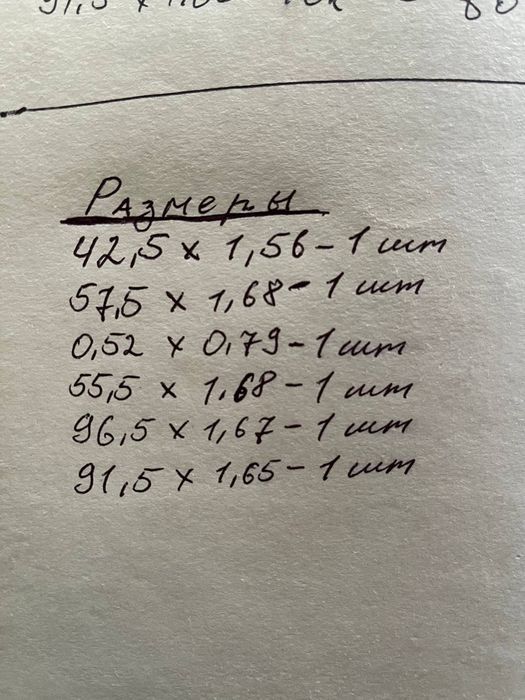 Размеры
42,5 x 1,56 - 1 шт
57,5 x 1,68 - 1 шт
0,52 x 0,79 - 1 шт
55,5 x 1.68 - 1 шт
96,5 x 1,67 - 1 шт
91,5 x 1,65 - 1 шт